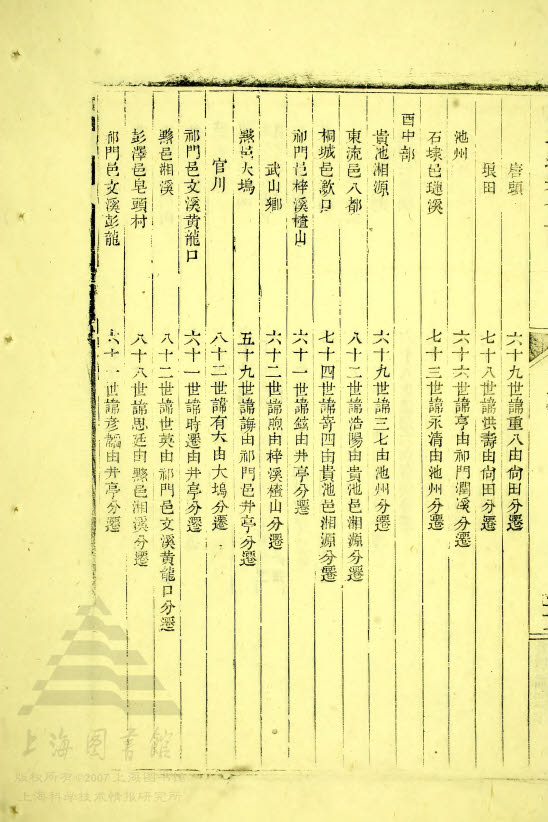 唐頭 六十九世諱重八由尙田分遷
琅田 七十八世諱洪壽由尙田分遷
池州 六十六世諱亨由祁門潤溪分遷
石埭邑璉溪 七十三世諱永清由池州分遷
酉中部
貴池湘源 六十九世諱三七由池州分遷
東流邑八都 八十二世諱浩陽由貴池邑湘源分遷
桐城邑歙口 七十四世諱 四由貴池邑湘源分遷
祁門邑梓溪楂山 六十一世諱鉉由井亭分遷
武山鄉 六十二世諱 由梓溪楂山分遷
黟邑大塢 五十九世諱誨由祁門邑井亭分遷
官川 八十二世諱有六由大塢分遷
祁門邑文溪黄龍口 六十一世諱時遷由井亭分遷
黟邑湘溪 八十二世諱世英由祁門邑文溪黄龍口分遷
彭澤邑皂頭村 八十八世諱思廷由黟邑湘溪分遷
祁門邑文溪彭龍 六十一世諱彦 由井亭分遷
上海图书馆
版权所有©2007上海图书馆
上海科学技术情报研究所